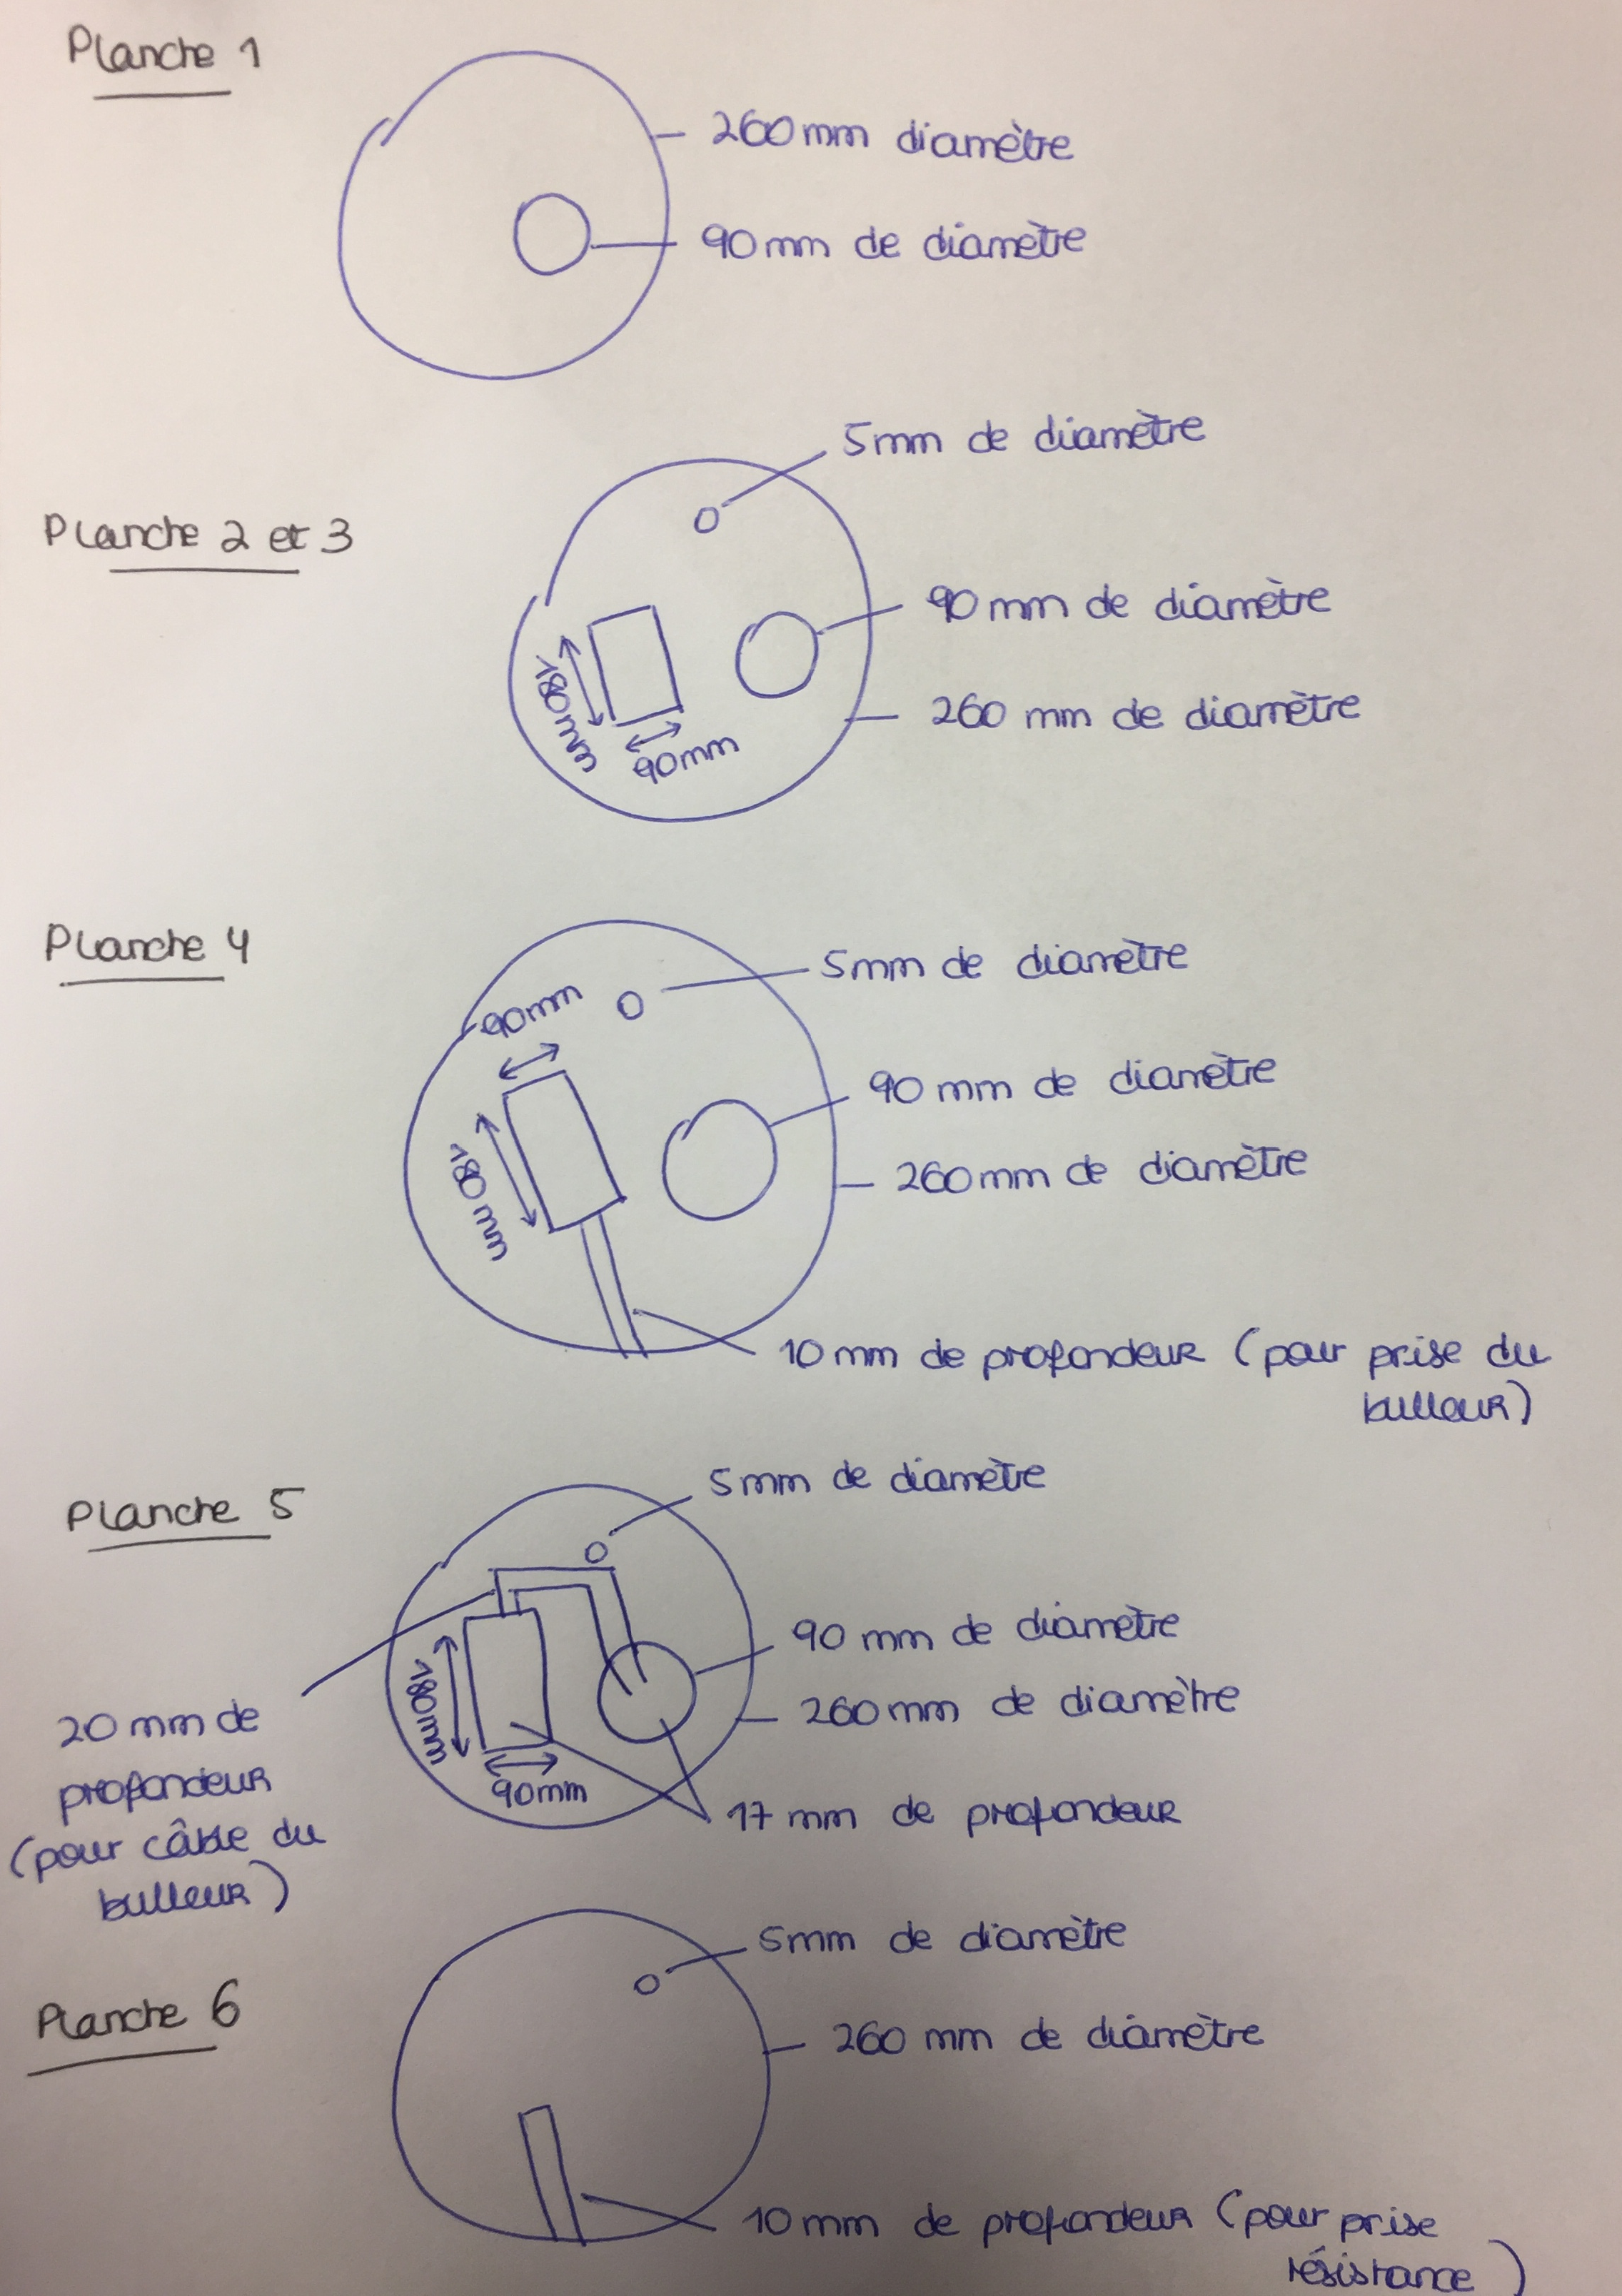 Planche 1
260mm diamètre
90mm de diamètre
5mm de diamètre
Planche 2 et 3
90mm de diamètre
180mm
260 mm de diamètre
90mm
Planche 4
5mm de diamètre
90mm
90 mm de diamètre
180mm
260mm de diamètre
10mm de profondeur (pour prise du
bulleur)
5mm de diamètre
Planche 5
90 mm de diamètre
180mm
260mm de diamètre
20mm de
profondeur
(pour câble du
bulleur)
90mm
17mm de profondeur
5mm de diamètre
Planche 6
260 mm de diamètre
10mm de profondeur (pour prise
résistance)